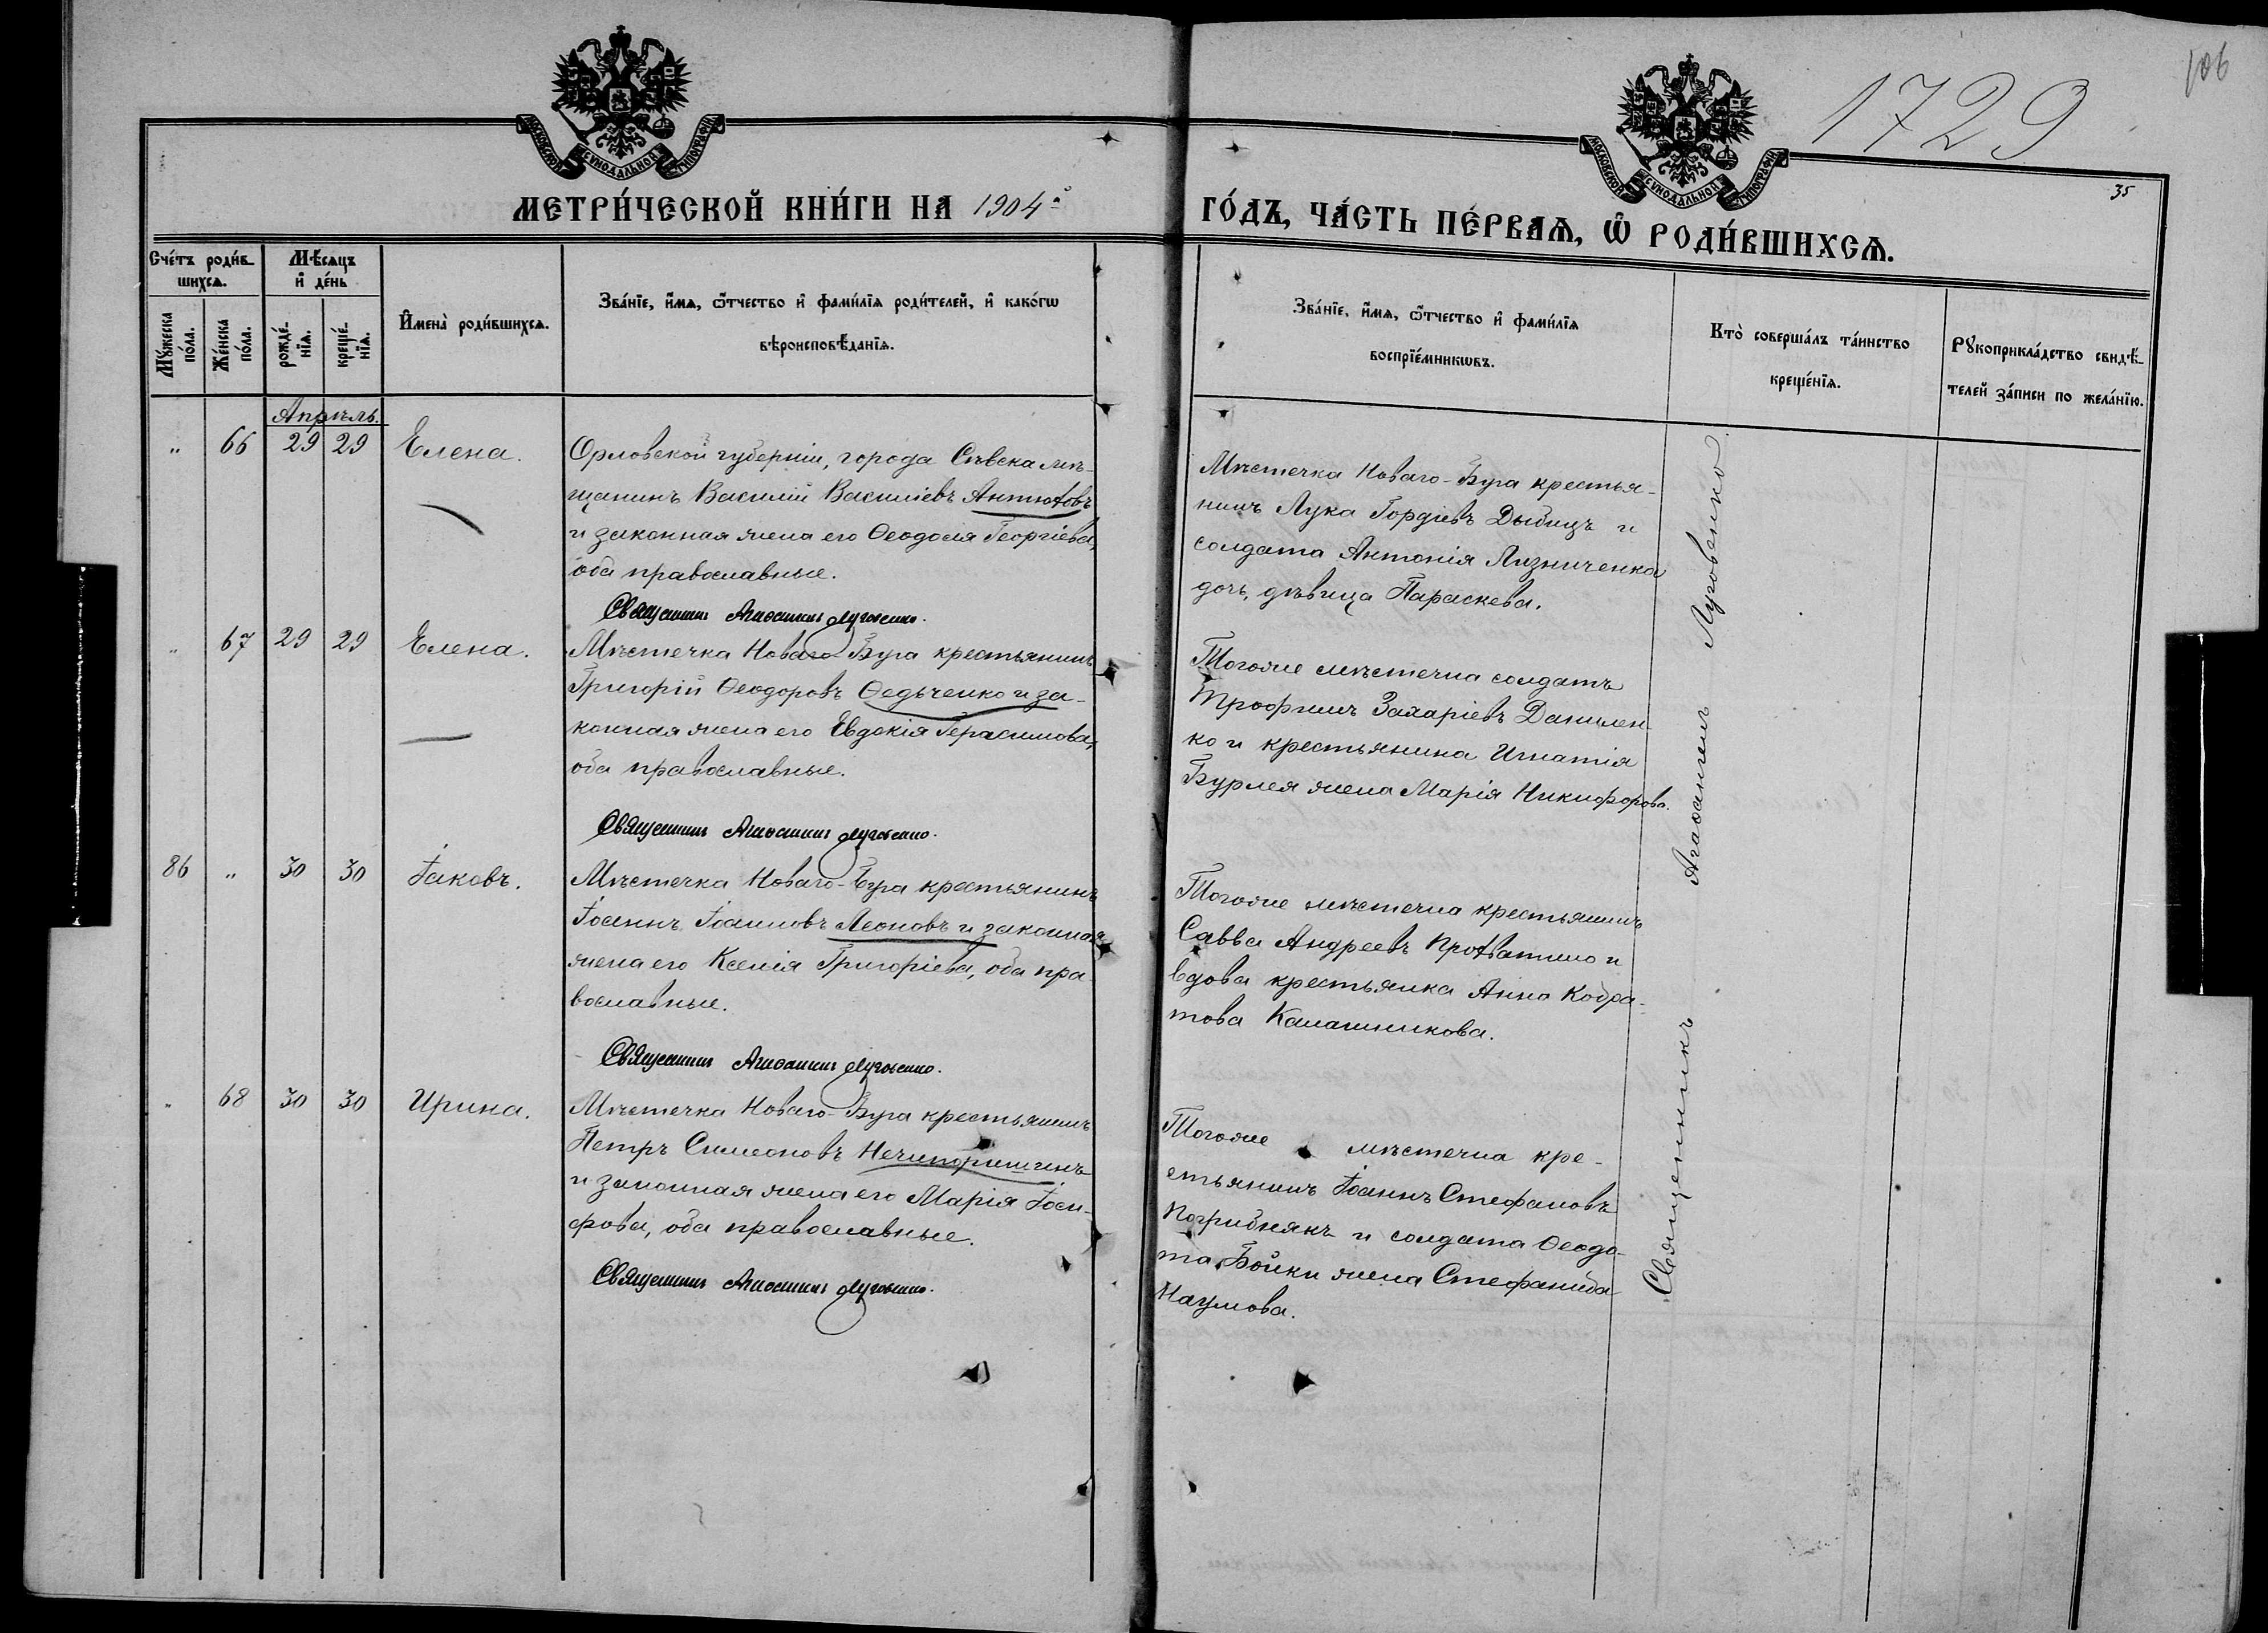 106
1729
35
МОСКОВСКОЙ СѴНОДАЛЬНОЙ ТИПОГРАФІИ
МОСКОВСКОЙ СѴНОДАЛЬНОЙ ТИПОГРАФІИ
МЕТРИ́ЧЕСКОЙ КНИ́ГИ НА 1904й
ГО́ДЪ, ЧА́СТЬ ПЕ́РВАѦ, Ѽ РОДИ́ВШИХСѦ.
Сче́тъ роди́в-
шихсѧ.
Мѣ́сѧцъ
и҆ де́нь
Мꙋ́жеска
по́ла.
Же́нска
по́ла.
рожде́-
нїѧ.
креще́-
нїѧ.
И҆мена̀ роди́вшихсѧ.
Зва́нїе, и҆́мѧ, ѻ҆́тчество и҆ фами́лїѧ роди́телей, и҆ како́гѡ
вѣроисповѣ́данїѧ.
Зва́нїе, и҆́мѧ, ѻ҆́тчество и҆ фами́лїѧ
воспрїе́мникѡвъ.
Кто̀ соверша́лъ та́инство
креще́нїѧ.
Рꙋкоприкла́дство свидѣ́-
телей за́писи по жела́нїю.
Апрѣль.
" 66 29 29 Елена.
Орловской губерніи, города Сѣвска мѣ-
щанинъ Василій Василіевъ Антюховъ
и законная жена его Ѳеодосія Георгіева,
оба православные.
Священникъ Агаѳангелъ Луговенко.
Мѣстечка Новаго-Буга крестья-
нинъ Лука Гордіевъ Дыбицъ и
солдата Антонія Лизниченка
дочь, дѣвица Параскева.
" 67 29 29 Елена.
Мѣстечка Новаго Буга крестьянинъ
Григорій Ѳеодоровъ Ѳедьченко и за-
конная жена его Евдокія Герасимова,
оба православные.
Священникъ Агаѳангелъ Луговенко.
Тогоже мѣстечка солдатъ
Трофимъ Захаріевъ Данилен-
ко и крестьянина Игнатія
Бурлея жена Марія Никифорова.
86 " 30 30 Іаковъ.
Мѣстечка Новаго-Буга крестьянинъ
Іоаннъ Іоанновъ Леоновъ и законная
жена его Ксенія Григоріева, оба пра-
вославные.
Священникъ Агаѳангелъ Луговенко.
Тогоже мѣстечка крестьянинъ
Савва Андреевъ и
вдова крестьянка Анна Кодра-
това Калашникова.
" 68 30 30 Ирина.
Мѣстечка Новаго-Буга крестьянинъ
Петръ Симеоновъ Нечипоришинъ
и законная жена его Марія Іоси-
фова, оба православные.
Священникъ Агаѳангелъ Луговенко.
Тогоже мѣстечка кре-
стьянинъ Іоаннъ Стефановъ
Погрибнякъ и солдата Ѳеодо-
та Бойки жена Стефанида
Наумова.
Священникъ Агаѳангелъ Луговенко